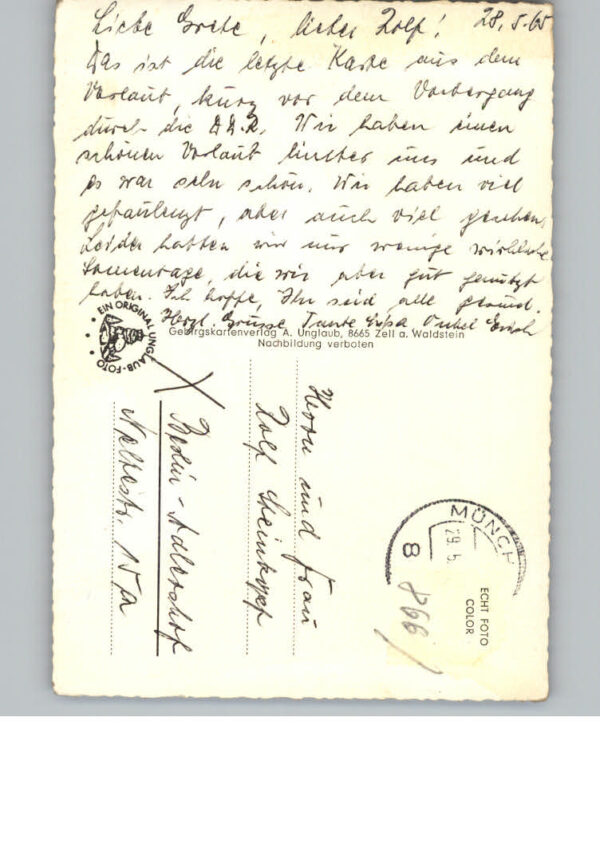 28. 5. 65
Liebe Grete, lieber Rolf!
Das ist die letzte Karte aus dem
Vorlaut, kurz vor dem Vorbergang
durch die DDR. Wir haben einen
schönen Vorlaut hinter uns und
es war sehr schön. Wir haben viel
gefaulenzt, aber auch viel gesehen.
Leider hatten wir nur wenige wirkliche
Sonnentage, die wir aber gut genutzt
haben. Ich hoffe, Ihr seid alle gesund.
Herzl. Grüsse Tante Onkel Erich
EIN ORIGINAL UNGLAUB-FOTO
Gebirgskartenverlag A. Unglaub, 8665 Zell a. Waldstein
Nachbildung verboten
Herrn und Frau
Rolf
Berlin-Adlershof
15a
8 MÜNCH
29. 5.
ECHT FOTO
COLOR